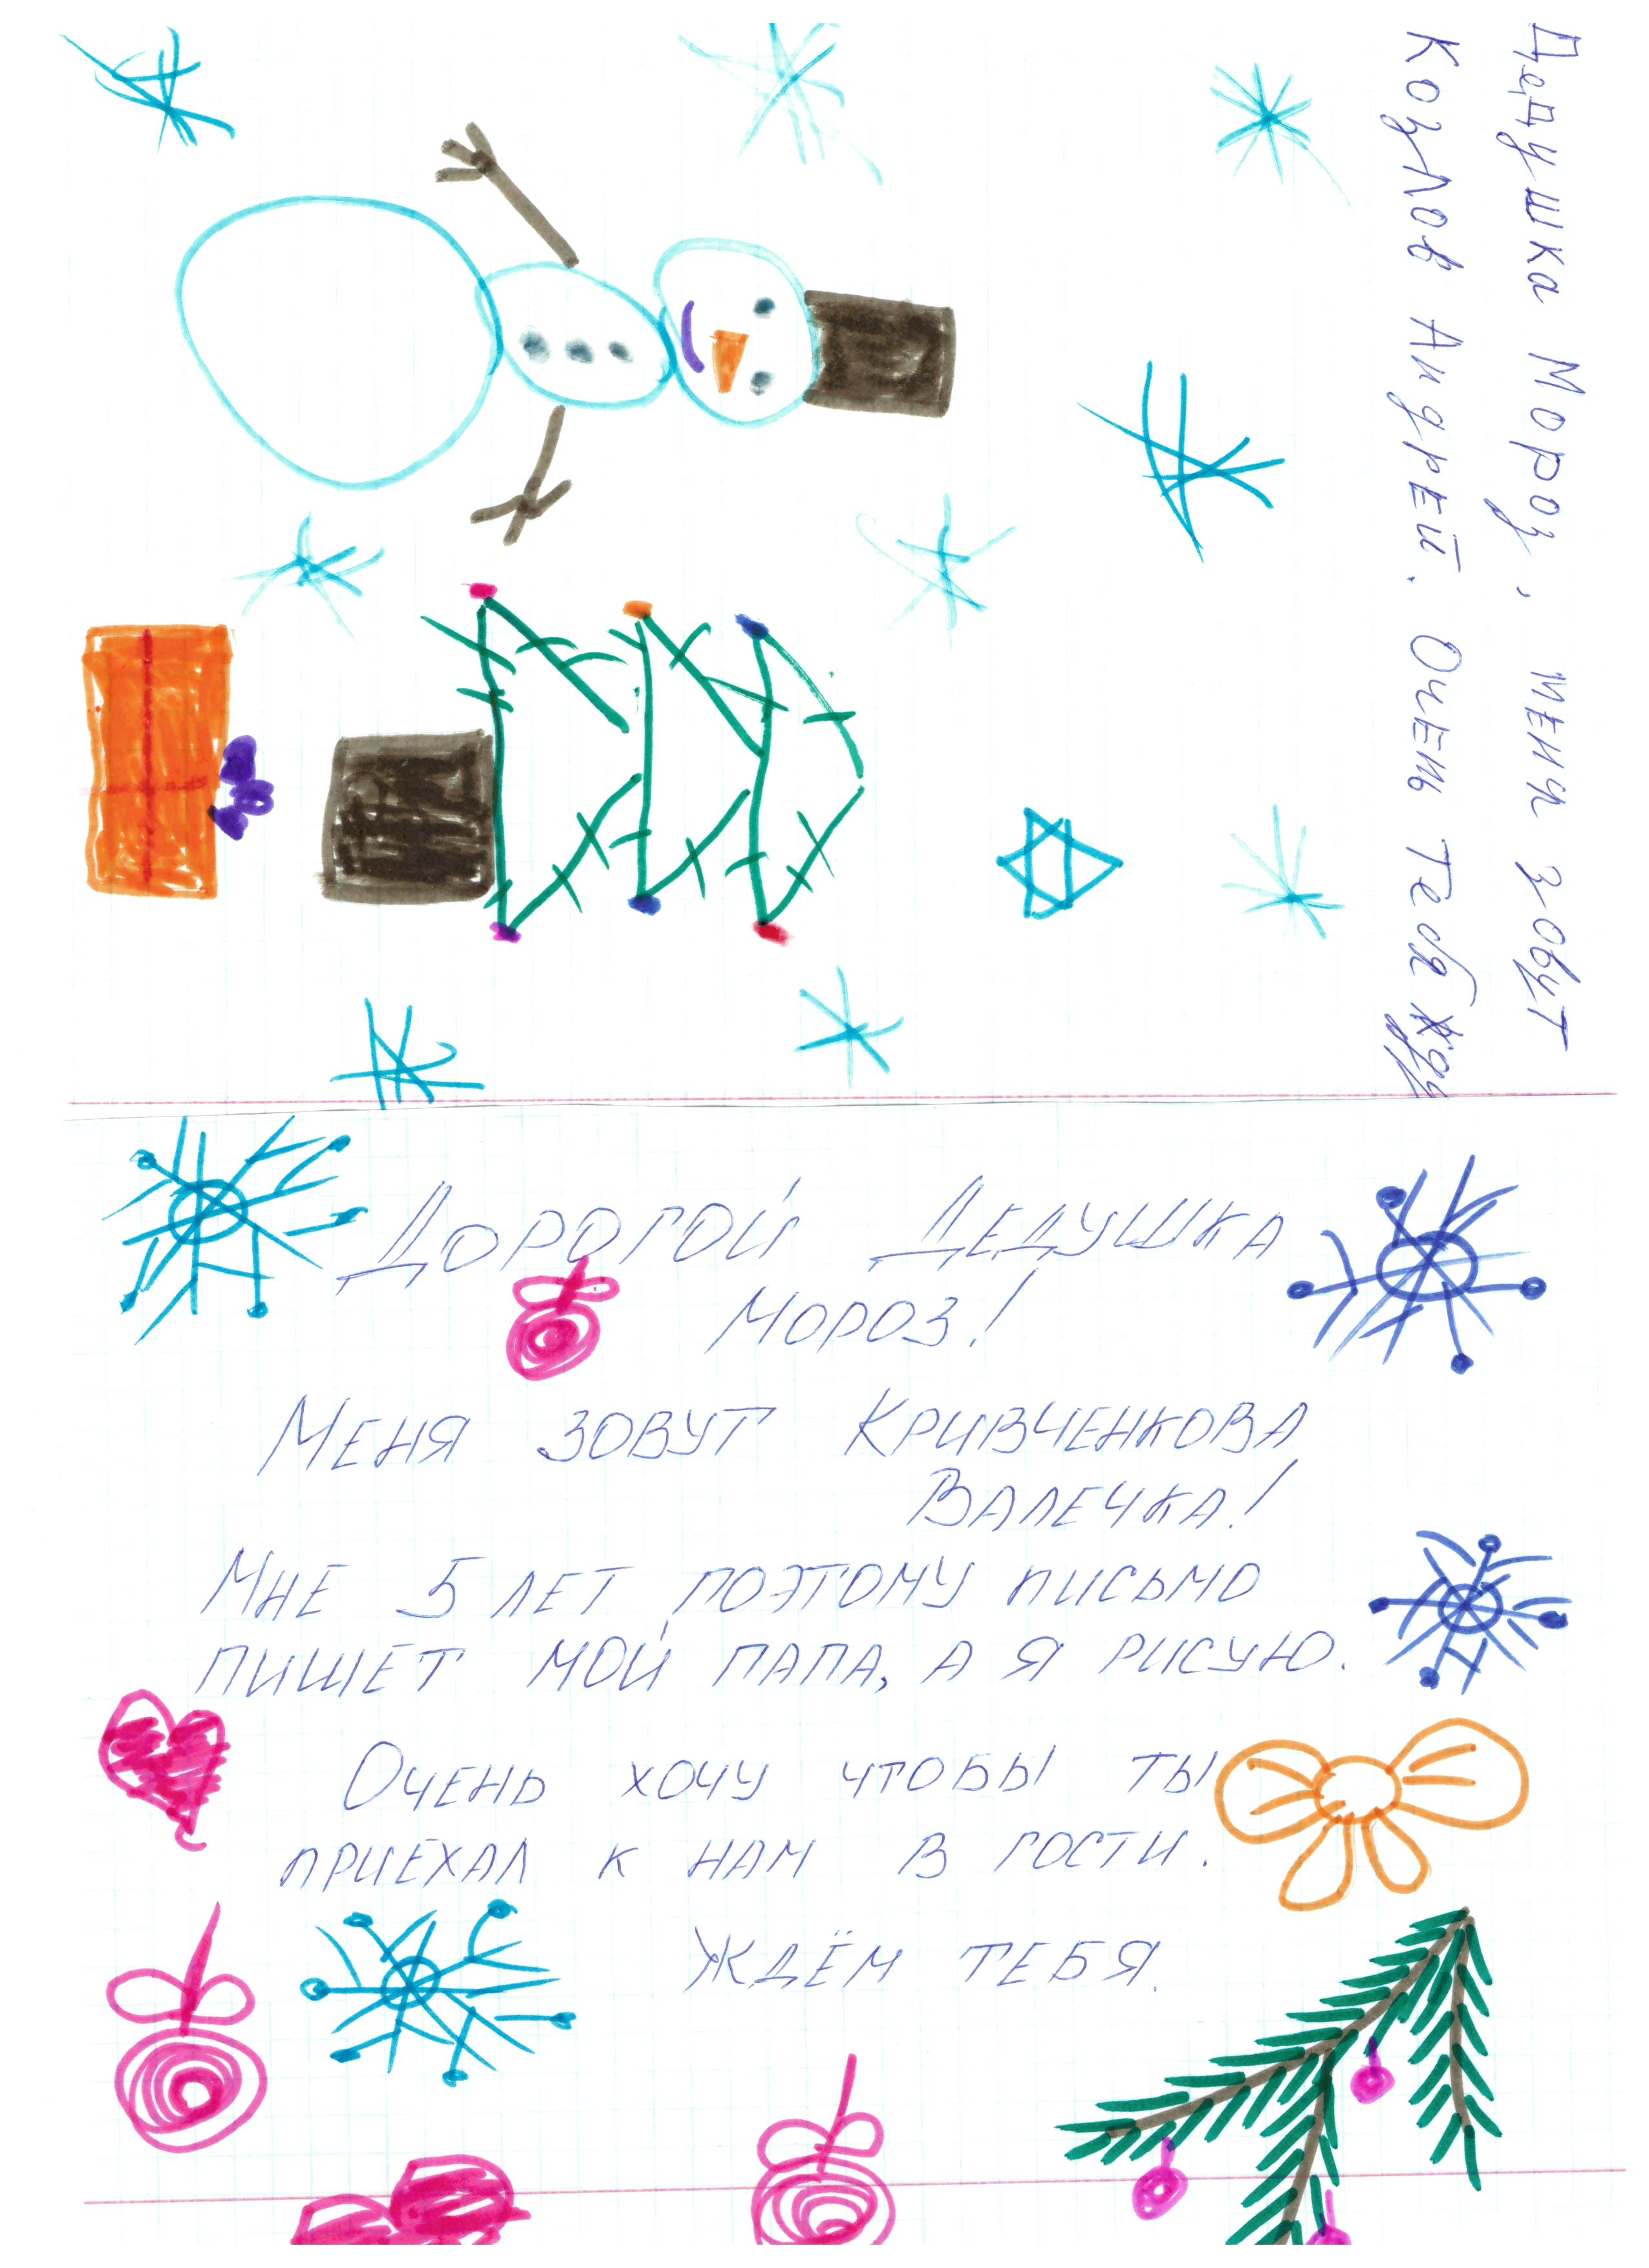 Дедушка Мороз, меня зовут
Козлов Андрей. Очень тебя жду
Дорогой Дедушка
Мороз!
Меня зовут Кривченкова
Валечка!
Мне 5 лет поэтому письмо
пишет мой папа, а я рисую.
Очень хочу чтобы ты
приехал к нам в гости.
Ждём тебя.